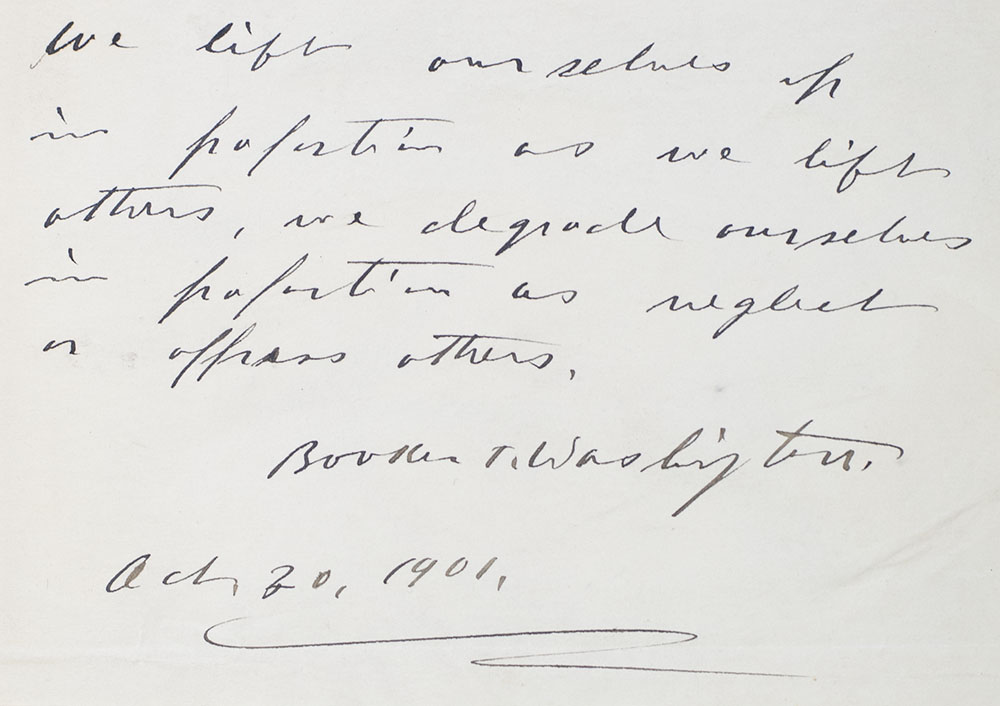 We lift ourselves up
in proportion as we lift
others, we degrade ourselves
in proportion as neglect
or oppress others.
Booker T. Washington.
Oct, 20, 1901.